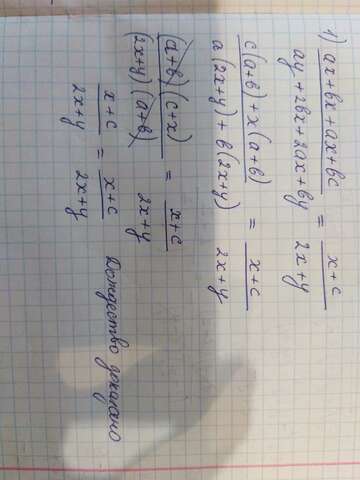 1) (ax+bx+ax+bc)/(ay+2bx+2ax+by) = (x+c)/(2x+y)
(c(a+b)+x(a+b))/(a(2x+y)+b(2x+y)) = (x+c)/(2x+y)
((a+b)(c+x))/((2x+y)(a+b)) = (x+c)/(2x+y)
(x+c)/(2x+y) = (x+c)/(2x+y)
Тождество доказано